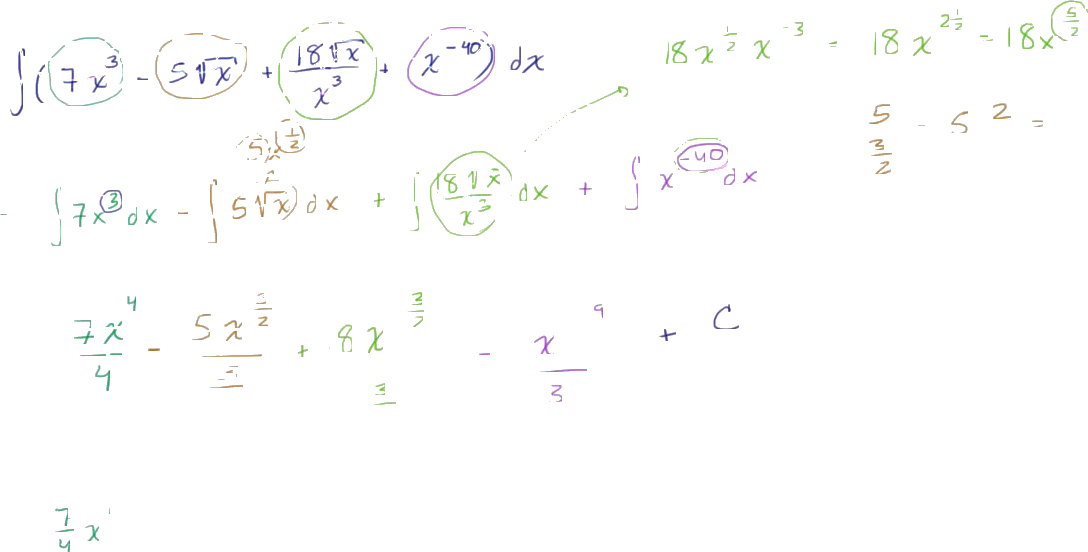 ∫(7x³ - 5√x + 18√x/x³ + x⁻⁴⁰) dx
18x^(1/2) x⁻³ = 18x^(2 1/2) = 18x^(5/2)
5/(3/2) - 5 2 =
5x^(1/2)
- ∫7x³dx - ∫5√x dx + ∫18√x/x³ dx + ∫x⁻⁴⁰dx
7x⁴/4 - 5x^(3/2) + 8x - x⁹/3 + C
7/4 x